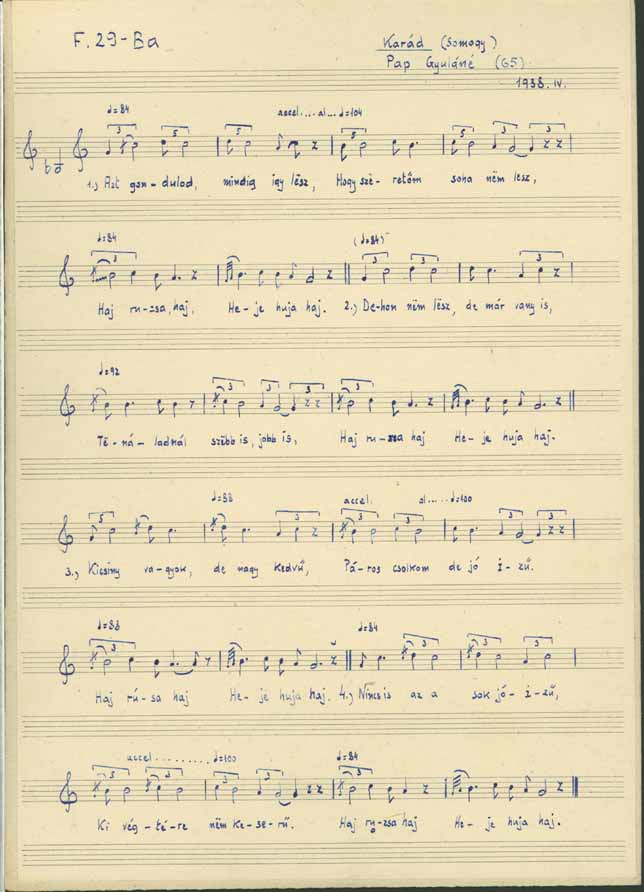 F.29-Ba
Karád (Somogy)
Pap Gyuláné (65)
1938. IV.
♩=84 accel....al...♩=104
3 5 5 5 5 3 3
1.) Azt gon-dulod, mindig igy lész, Hogy szë-retőm soha nëm lesz,
♩=84 (♩=84)
3 3 3 3
Haj ru-zsa, haj, He-je huja haj. 2.) De-hon nëm lész, de már vany is,
♩=92
3 3 3 3
Të-ná-ladnál szëbb is, jobb is, Haj ru-zsa haj He-je huja haj.
♩=88 accel. al.....♩=100
5 3 3 3 3 3
3.) Kicsiny va-gyok, de nagy kedvű, Pá-ros csolkom de jó i-zű.
♩=88 ♩=84
3 3 3 3
Haj rú-sa haj He-je huja haj. 4.) Nincs is az a sok jó-i-zű,
accel..........♩=100 ♩=84
5 3 3 3 5
Ki vég-té-re nëm ke-se-rű. Haj ru-zsa haj He-je huja haj.